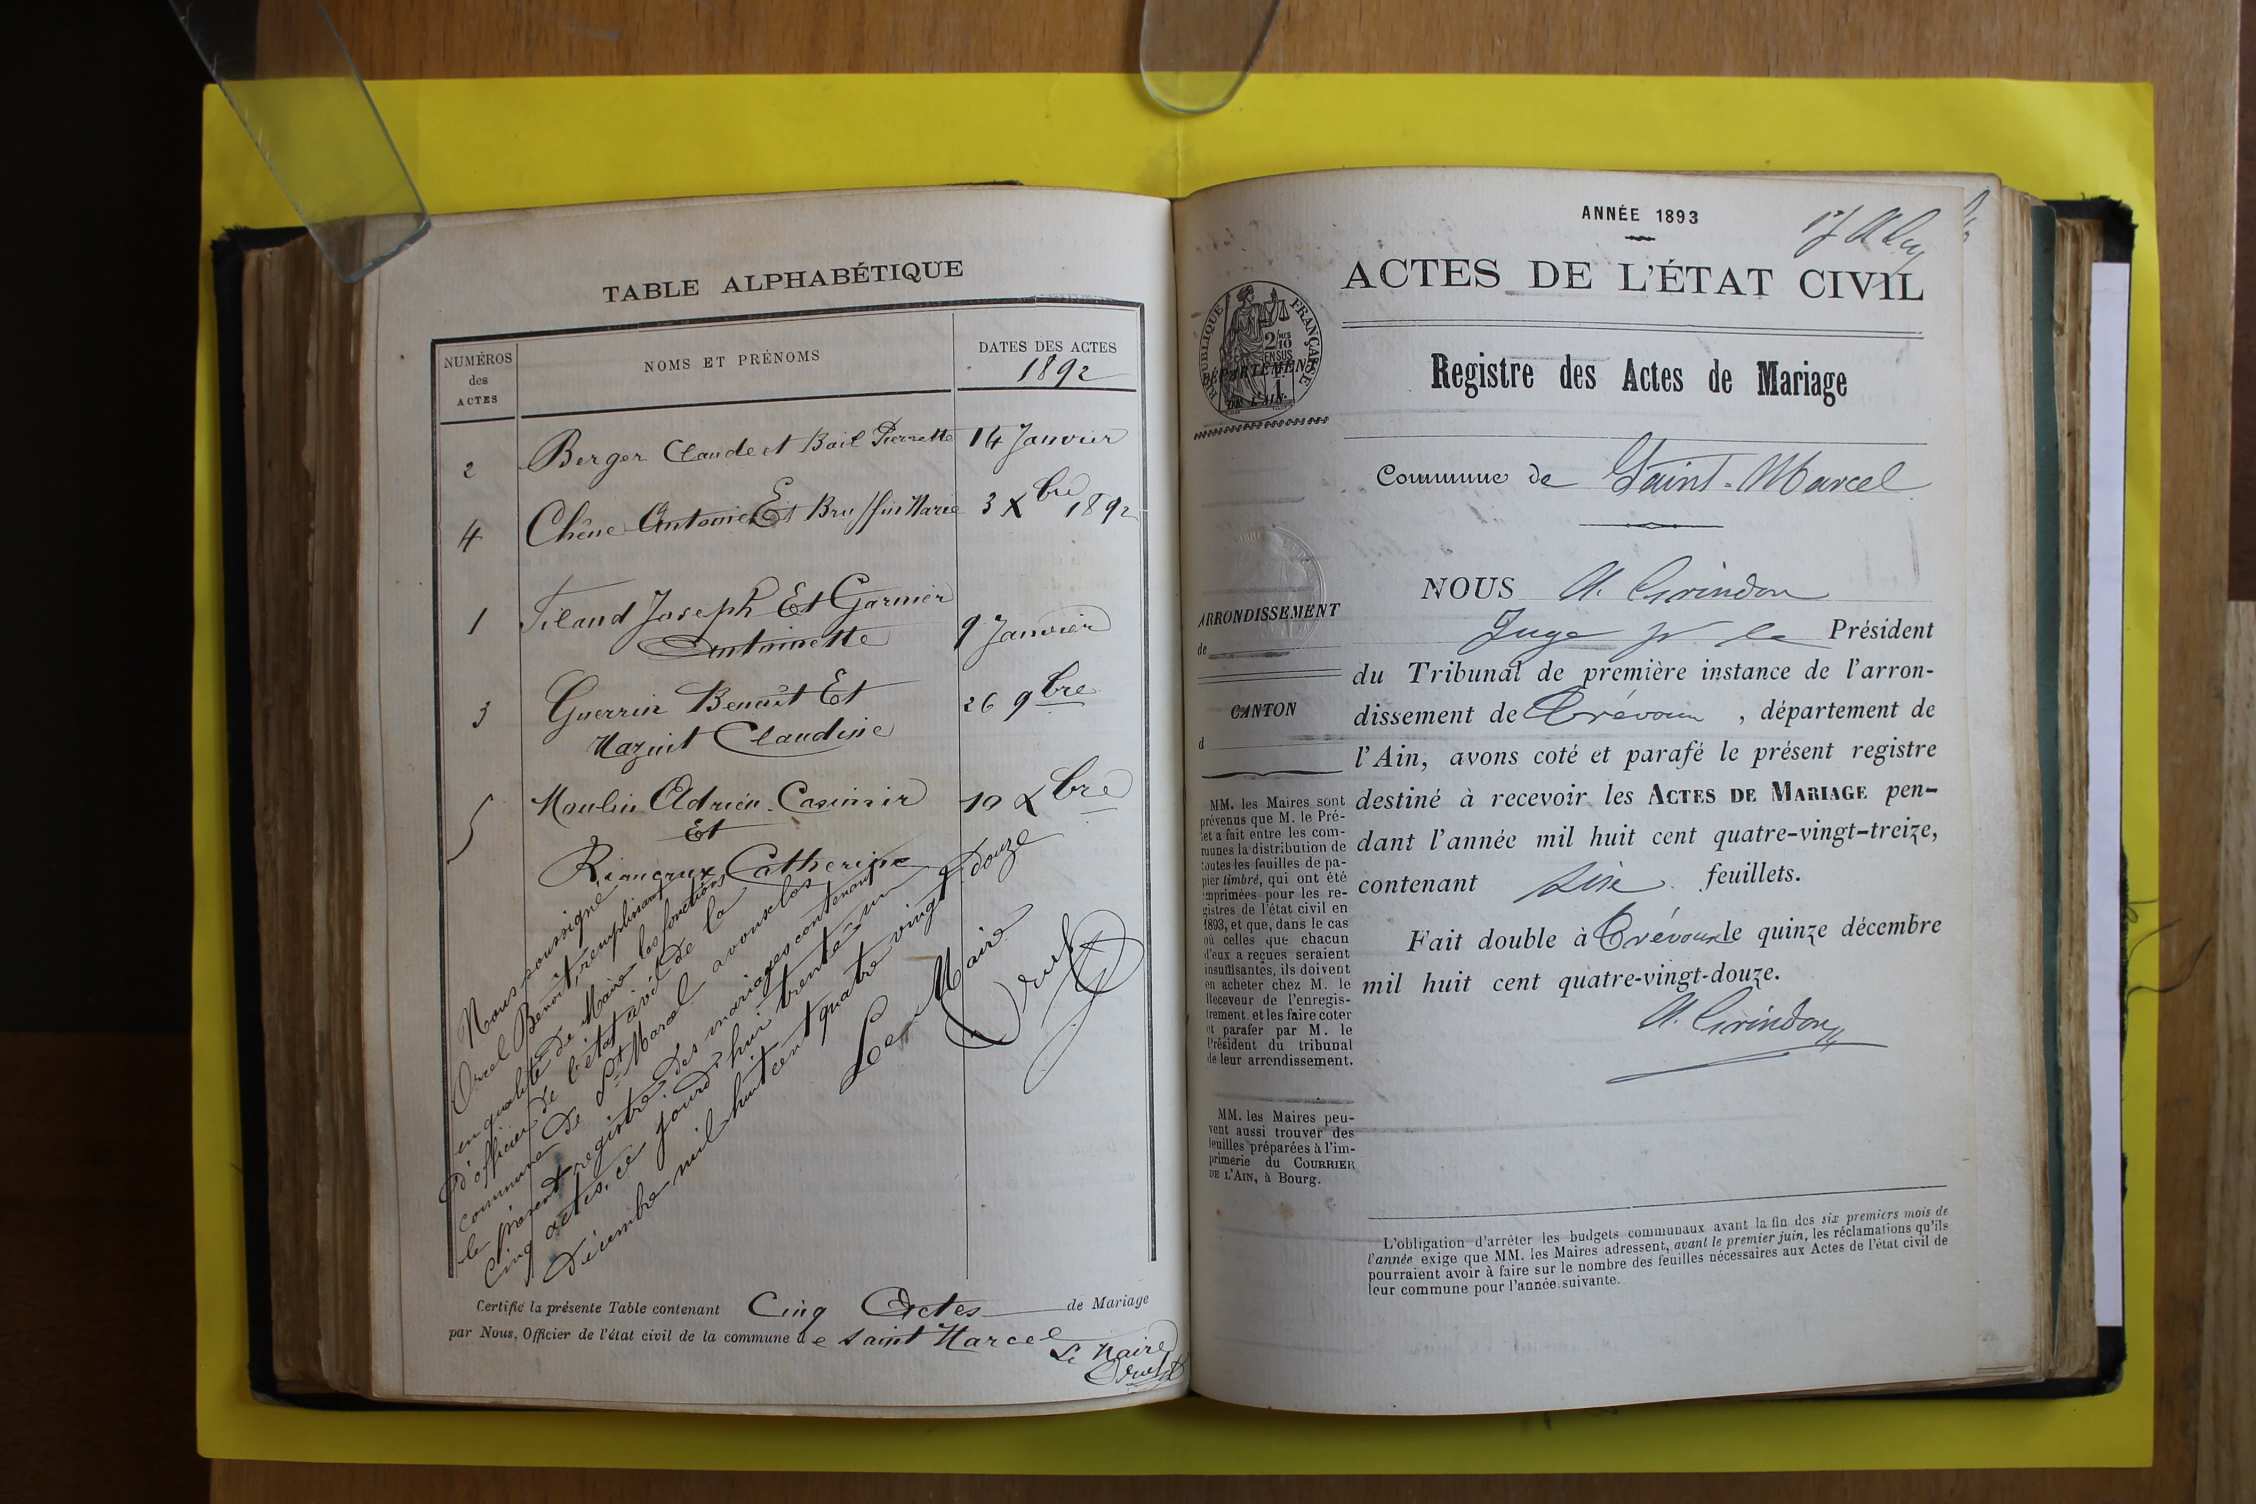 TABLE ALPHABÉTIQUE
NUMÉROS
des
ACTES
NOMS ET PRÉNOMS
DATES DES ACTES
1892
2 Berger Claude et Bail Pierrette 14 Janvier
4 Chêne Antoine Et Bruffin Marie 3 Xbre 1892
1 Filand Joseph Et Garnier
Antoinette 9 Janvier
3 Guerrin Benoît Et 26 9bre
Mazuit Claudine
5 Moulin Adrien Casimir 10 Xbre
Et
Catherine
Nous soussigné
Orcel Benoît, remplissant
en qualité de Maire les fonctions
d'officier de l'état civil de la
commune de St Marcel avons clos
le présent registre des mariages contenant
cinq actes, ce jourd'hui trente-un
Décembre mil huit cent quatre vingt douze
Le Maire
Orcel
Certifié la présente Table contenant Cinq Actes de Mariage
par Nous, Officier de l'état civil de la commune de Saint Marcel
Le Maire
Orcel
ANNÉE 1893
ACTES DE L'ÉTAT CIVIL
RÉPUBLIQUE FRANÇAISE
2/10
EN SUS
DÉPARTEMENT
DE L'AIN.
Registre des Actes de Mariage
Commune de Saint-Marcel
NOUS A. Grindon
Juge pr le Président
du Tribunal de première instance de l'arron-
dissement de Trévoux, département de
l'Ain, avons coté et parafé le présent registre
destiné à recevoir les ACTES DE MARIAGE pen-
dant l'année mil huit cent quatre-vingt-treize,
contenant feuillets.
Fait double à Trévoux le quinze décembre
mil huit cent quatre-vingt-douze.
A. Grindon
ARRONDISSEMENT
de
CANTON
d
MM. les Maires sont
prévenus que M. le Pré-
fet a fait entre les com-
munes la distribution de
toutes les feuilles de pa-
pier timbré, qui ont été
imprimées pour les re-
gistres de l'état civil en
1893, et que, dans le cas
où celles que chacun
d'eux a reçues seraient
insuffisantes, ils doivent
en acheter chez M. le
Receveur de l'enregis-
trement. et les faire coter
et parafer par M. le
Président du tribunal
de leur arrondissement.
MM. les Maires peu-
vent aussi trouver des
feuilles préparées à l'im-
primerie du COURRIER
DE L'AIN, à Bourg.
L'obligation d'arrêter les budgets communaux avant la fin des six premiers mois de
l'année exige que MM. les Maires adressent, avant le premier juin, les réclamations qu'ils
pourraient avoir à faire sur le nombre des feuilles nécessaires aux Actes de l'état civil de
leur commune pour l'année suivante.